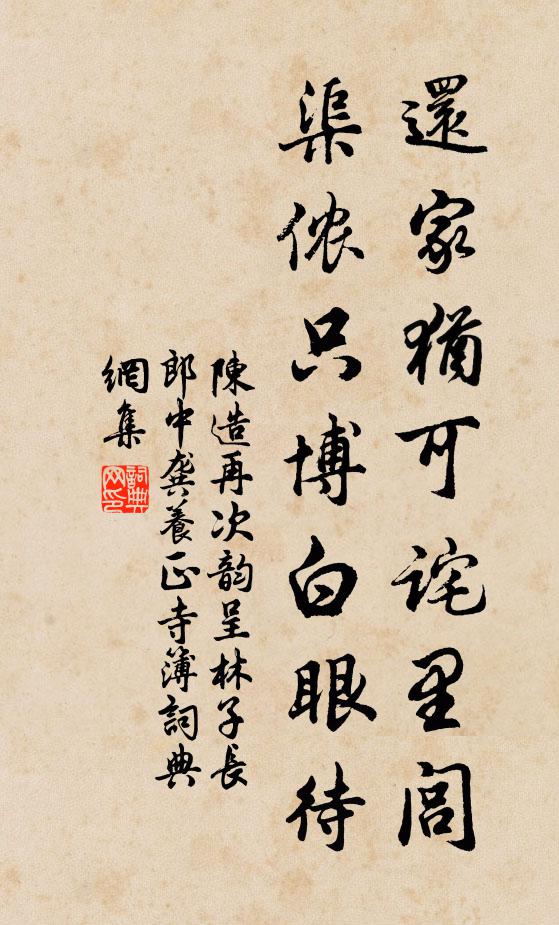 還家猶可詫里閭
渠侬只博白眼待
陳造再次韵呈林子長
郎中龔養正寺簿詞典
網集
詞典網印